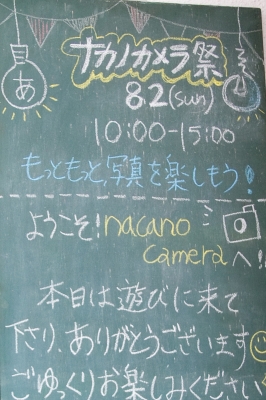 あ
ナカノカメラ祭
8.2(sun)
10:00-15:00
もっともっと、写真を楽しもう!
ようこそ!nacano
cameraへ!!
本日は遊びに来て
下さり、ありがとうございます
ごゆっくりお楽しみください